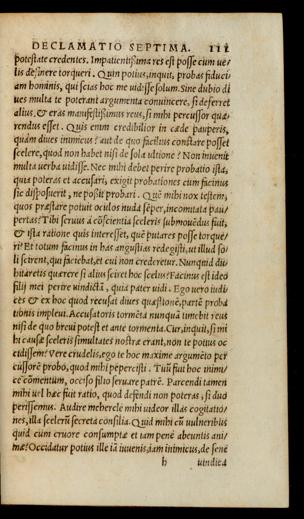 DECLAMATIO SEPTIMA. 111
potestate credentes. Impatientißima res est posse cum ue/
lis desinere torqueri. Quin potius, inquit, probas fiduci
am hominis, qui scias hoc me uidisse solum. Sine dubio di
ues multa te poterant argumenta conuincere, si deferret
alius, & eras manifestißimus reus, si mihi percussor quæ
rendus esset. Quis enim credibilior in cæde pauperis,
quàm diues inimicus? aut de quo facilius constare posset
scelere, quod non habet nisi de sola ultione? Non inuenit
multa uerba uidisse. Nec mihi debet perire probatio ista,
quia poteras et accusari, exigit probationes cum facinus
sic disposuerit, ne poßit probari. Quē mihi nox testem,
quos præstare potuit oculos nuda semper, incomitata pau/
pertas? Tibi seruus à cōscientia sceleris submouēdus fuit,
& ista ratione quis interesset, quē putares posse torque/
ri? Et totum facinus in has angustias redegisti, ut illud so/
li scirent, qui faciebat, et cui non crederetur. Nunquid du/
bitaretis quærere si alius sciret hoc scelus? Facinus est ideo
filij mei perire uindictā, quia pater uidi. Ego uero iudi/
ces & ex hoc quod recusat diues quæstionē, partē proba
tionis impleui. Accusatoris tormēta nunquā timebit reus
nisi de quo breui potest et ante tormenta. Cur, inquit, si mi
hi causæ sceleris simultates nostræ erant, non te potius oc
cidissem? Vere crudelis, ego te hoc maxime argumēto per
cussorē probo, quod mihi pepercisti. Tuū fuit hoc inimi/
ce cōmentum, occiso filio seruare patrē. Parcendi tamen
mihi uel hæc fuit ratio, quod defendi non poteras, si duo
perissemus. Audire mehercle mihi uideor illas cogitatio/
nes, illa scelerū secreta consilia. Quid mihi cū uulneribus
quid cum cruore consumptæ et tam penè abeuntis ani/
mæ? Occidatur potius ille iā iuuenis, iam inimicus, de sene
h uindicta